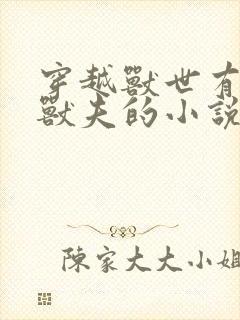 穿越獸世有
獸夫的小說
陳家大大小姐